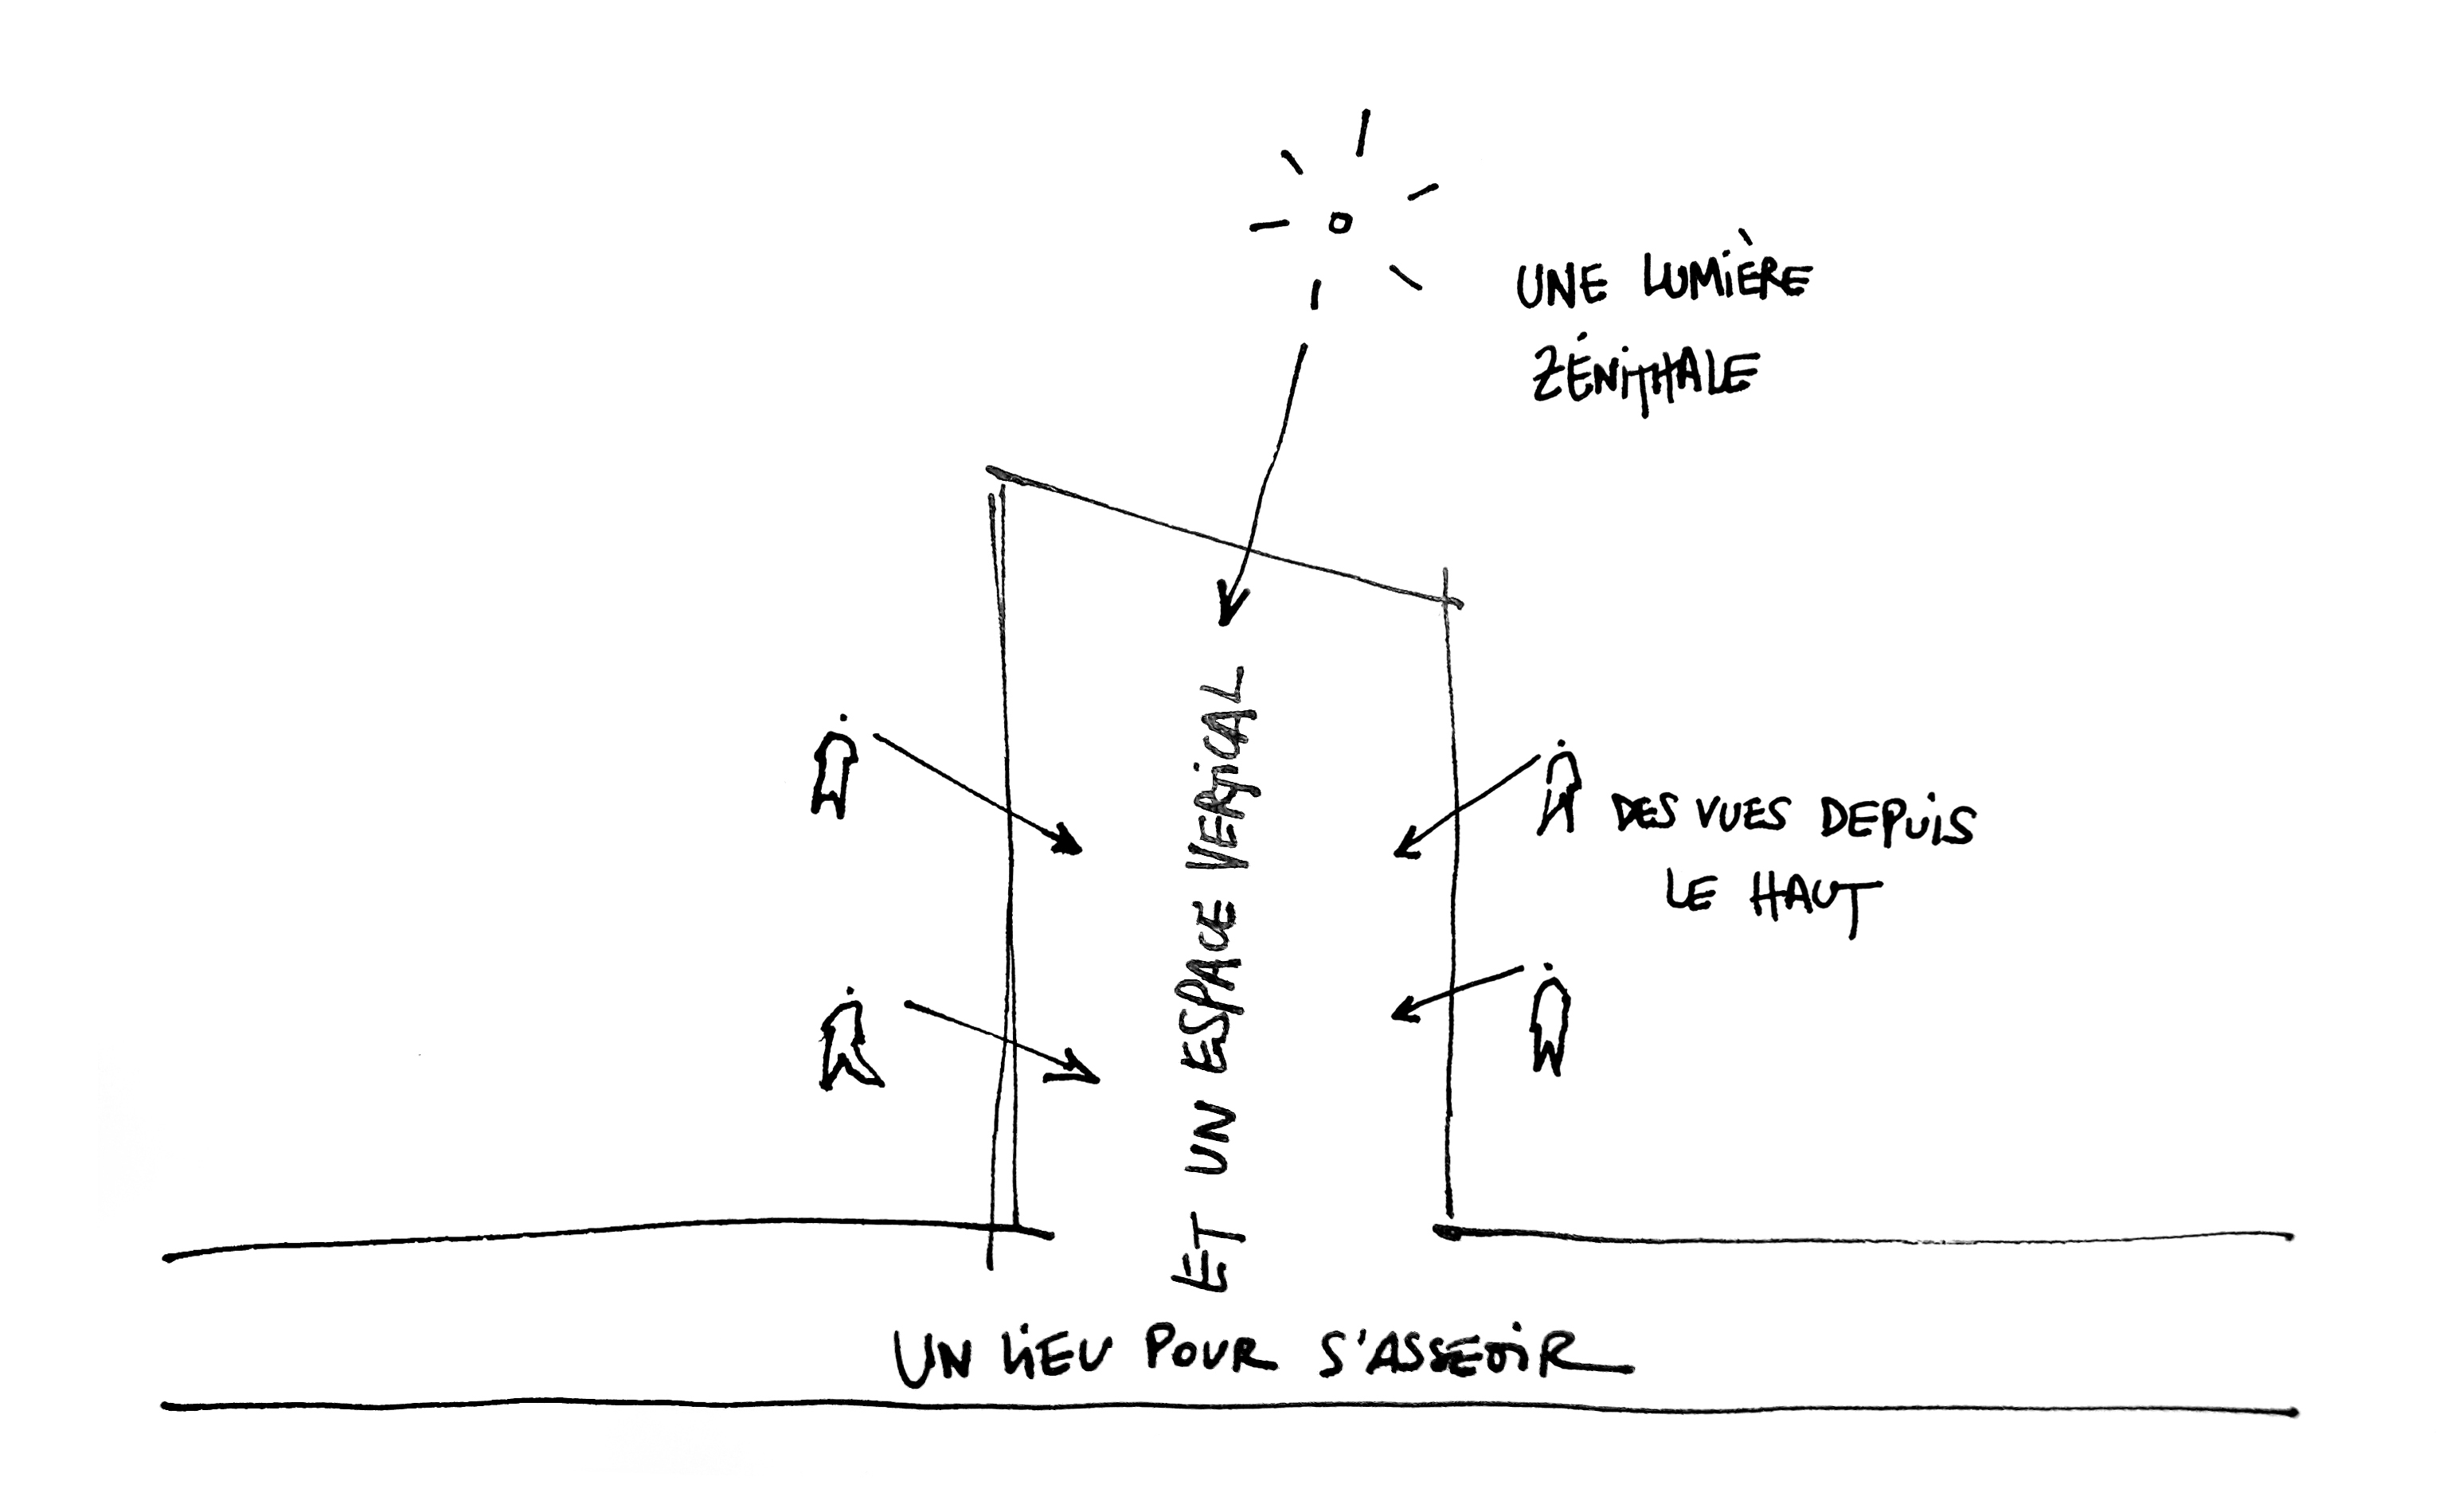 UNE LUMIÈRE
ZÉNITHALE
ET UN ESPACE VERTICAL
DES VUES DEPUIS
LE HAUT
UN LIEU POUR S'ASSEOIR